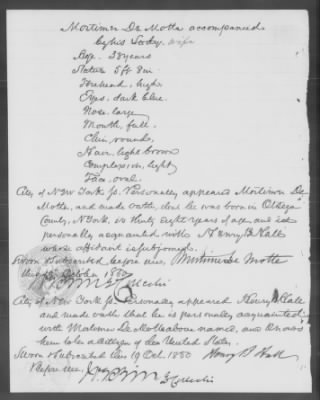 Mortimer De Motte accompanied
by his Lady, wife
Age. 38 years
Stature 5 ft 8 in
Forehead, high
Eyes, dark blue
Nose, large
Mouth, full.
Chin, round,
Hair, light brown
Complexion, light
Face, oval.
City of New York ss. Personally appeared Mortimer De
Motte, and made oath, that he was born in Otsego
County, N York, is thirty eight years of age and is
personally acquainted with Henry B Hall
whose affidavit is subjoined.
Sworn & subscribed before me, Mortimer De Motte
October 1850
City of New York ss. Personally appeared Henry B Hall
and made oath that he is personally acquainted
with Mortimer De Motte above named, and knows
him to be a citizen of the United States.
Sworn & subscribed this 19 Oct. 1850 Henry B Hall
Before me